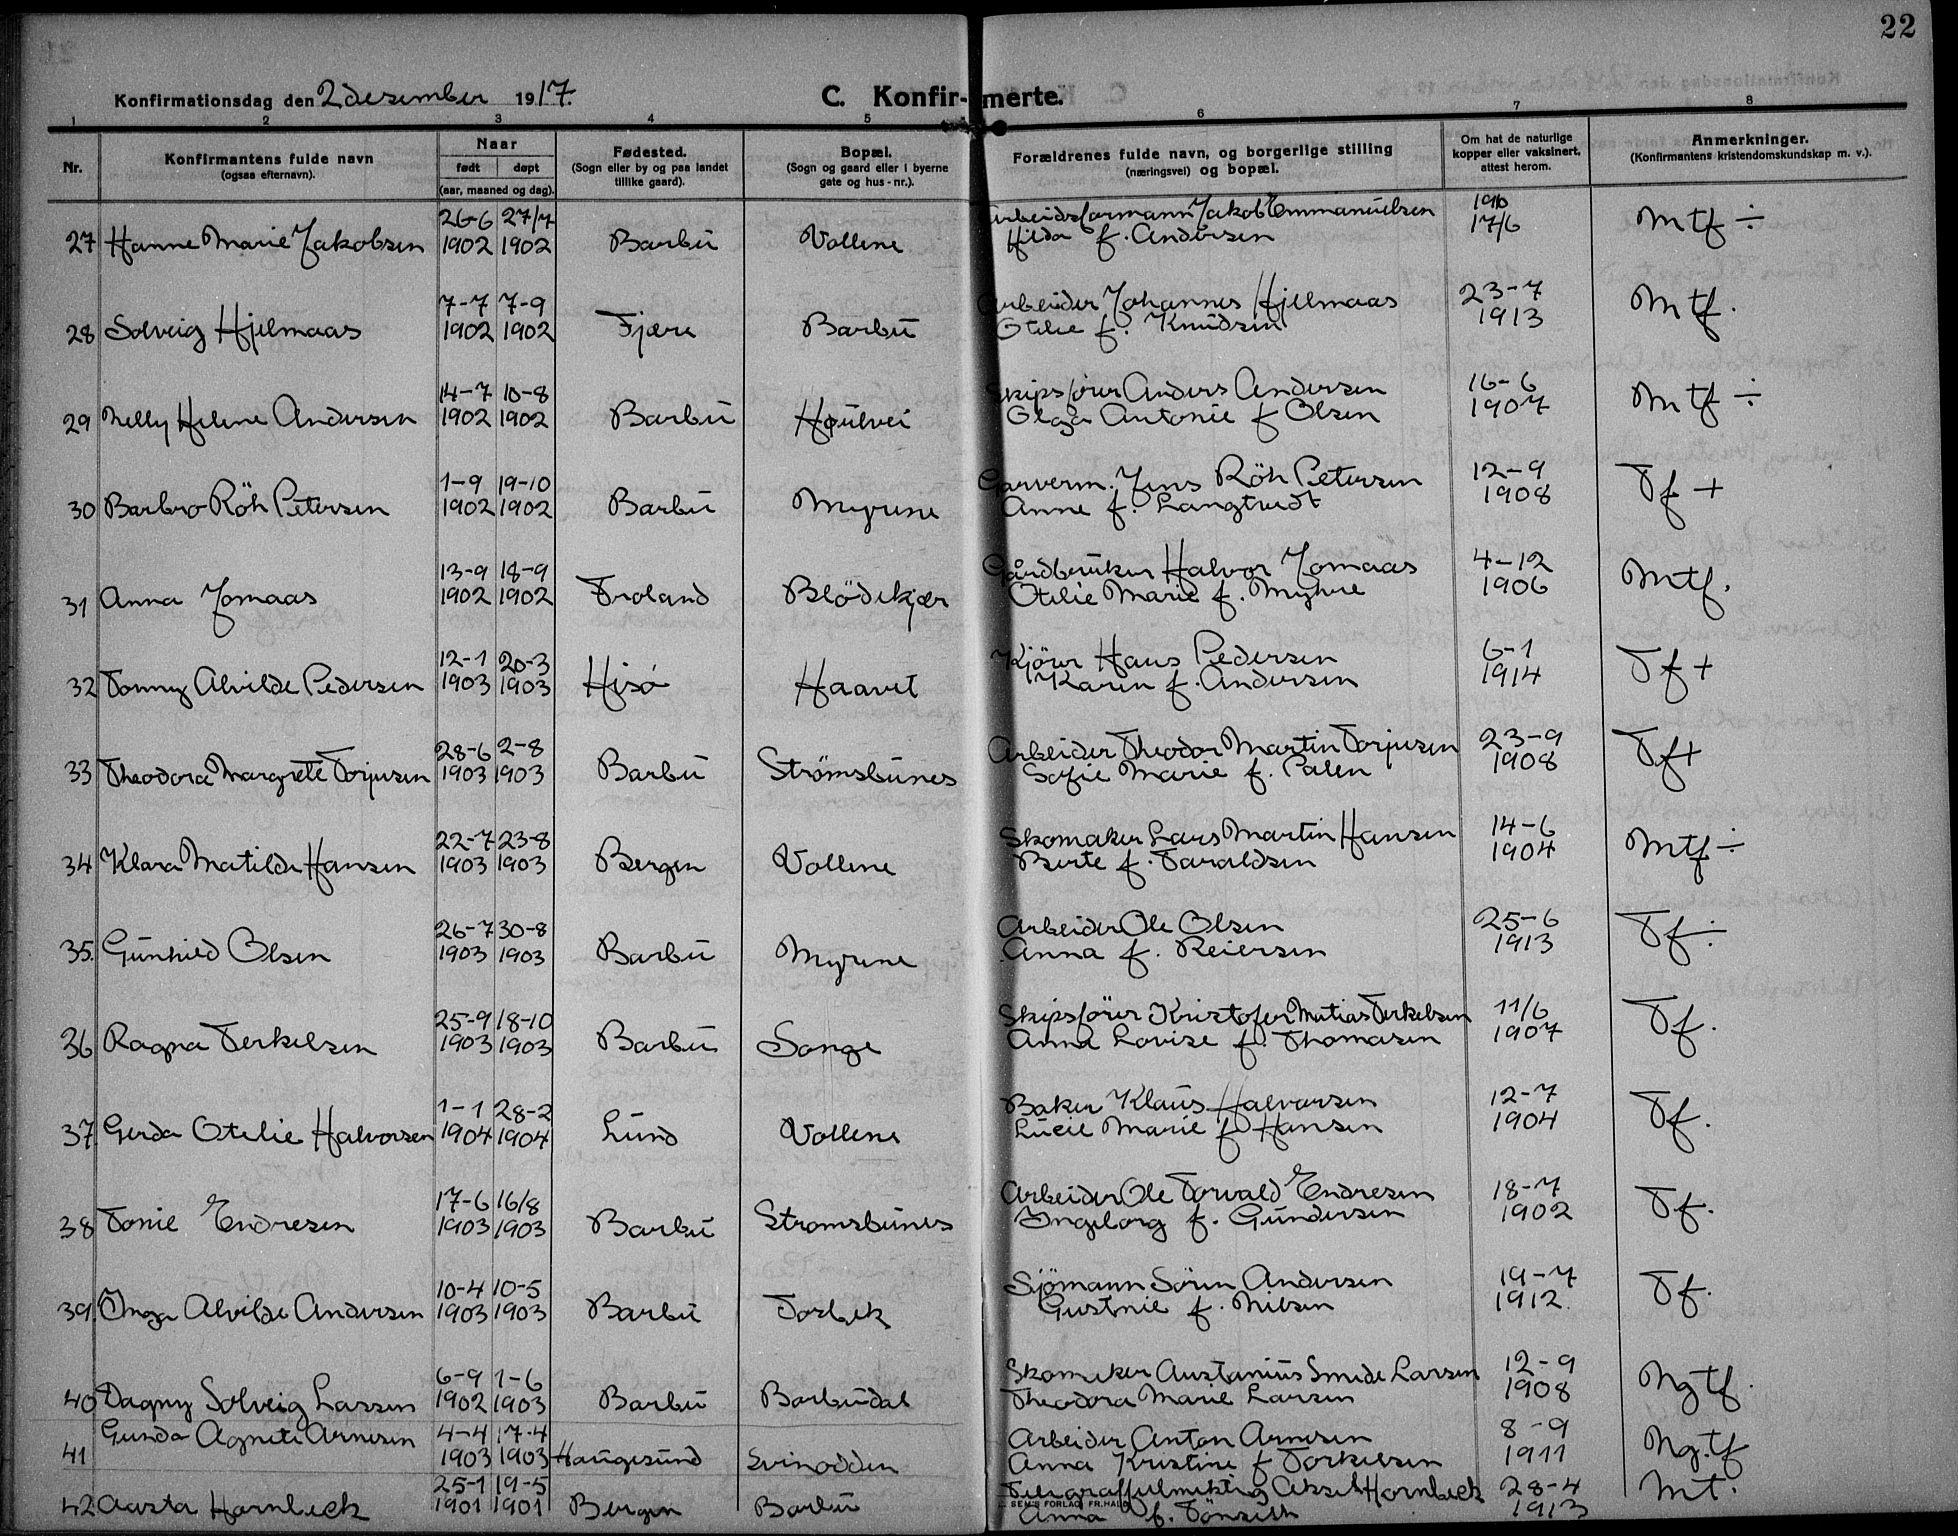 22
Konfirmationsdag den 2 desember 1917.
C. Konfirmerte.
1 2 3 4 5 6 7 8
Nr.
Konfirmantens fulde navn
(ogsaa efternavn).
Naar
født døpt
(aar, maaned og dag).
Fødested.
(Sogn eller by og paa landet
tillike gaard).
Bopæl.
(Sogn og gaard eller i byerne
gate og hus-nr.).
Forældrenes fulde navn, og borgerlige stilling
(næringsvei) og bopæl.
Om hat de naturlige
kopper eller vaksinert,
attest herom.
Anmerkninger.
(Konfirmantens kristendomskundskap m. v.).
26-6 27/7 Arbeidsformann Jakob Emmanuelsen
27 Hanne Marie Jakobsen 1902 1902 Barbu Vollene Hilda f. Andersen 17/6 Mtf ÷
7-7 7-9 Arbeider Johannes Hjelmaas 23-7
28 Solveig Hjelmaas 1902 1902 Fjære Barbu Otilie f. Knudsen 1913 Mtf.
14-7 10-8 Skipsfører Anders Andersen 16-6
29 Nelly Helene Andersen 1902 1902 Barbu Høulvei Olaga Antonie f Olsen 1907 Mtf ÷
1-9 19-10 Garverm. Jens Röh Petersen 12-9
30 Barbro Röh Petersen 1902 1902 Barbu Myrene Anne f. Langtvedt 1908 Tf +
13-9 18-9 Gårdbruker Halvor Jomaas 4-12
31 Anna Jomaas 1902 1902 Froland Blödekjær Otilie Marie f. Myhre 1906 Mtf.
12-1 20-3 Kjörer Hans Pedersen 6-1
32 Tonny Alvilde Pedersen 1903 1903 Hisö Haavet Karen f. Andersen 1914 Tf +
28-6 2-8 Arbeider Theodor Martin Torjusen 23-9
33 Theodora Margrete Torjusen 1903 1903 Barbu Strömsbunes Sofie Marie f. Palen 1908 Tf +
22-7 23-8 Skomaker Lars Martin Hansen 14-6
34 Klara Matilde Hansen 1903 1903 Bergen Vollene Berte f. Taraldsen 1904 Mtf ÷
26-7 30-8 Arbeider Ole Olsen 25-6
35. Gunhild Olsen 1903 1903 Barbu Myrene Anna f. Reiersen 1913 Tf ÷
25-9 18-10 Skipsförer Kristofer Matias Terkelsen 11/6
36 Ragna Terkelsen 1903 1903 Barbu Songe Anna Lovise f. Thomasen 1907 Tf.
1-1 28-2 Baker Klaus Halvorsen 12-7
37 Gerda Otilie Halvorsen 1904 1904 Lund Vollene Lucie Marie f Hansen 1904 Tf.
17-6 16/8 Arbeider Ole Torvald Endresen 18-7
38 Tonie Endresen 1903 1903 Barbu Stromsbunes Ingeborg f. Gundersen 1902 Tf.
10-4 10-5 Sjömann Sören Andersen 19-7
39. Inga Alvilde Andersen 1903 1903 Barbu Torbek Gustnie f. Nilsen 1912. Tf.
6-9 1-6 Skomaker Austanius Smede Larsen 12-9
40 Dagny Solveig Larsen 1902 1903 Barbu Barbudal Theodora Marie Larsen 1908 Ngtf.
Gunda Agnete Arnesen 4-4 17-4 Arbeider Anton Arnesen 8-9
41 1903 1903 Haugesund Svinodden Anna Kristine f Torkelsen 1911 Ng.tf
25-1 19-5 Telegraffulmektig Aksel Hornbeck 28-4
42 Aasta Hornbeck 1901 1901 Bergen Barbu Anna f. Tönseth 1913 Mt.
SEM'S FORLAG, FR.HALD